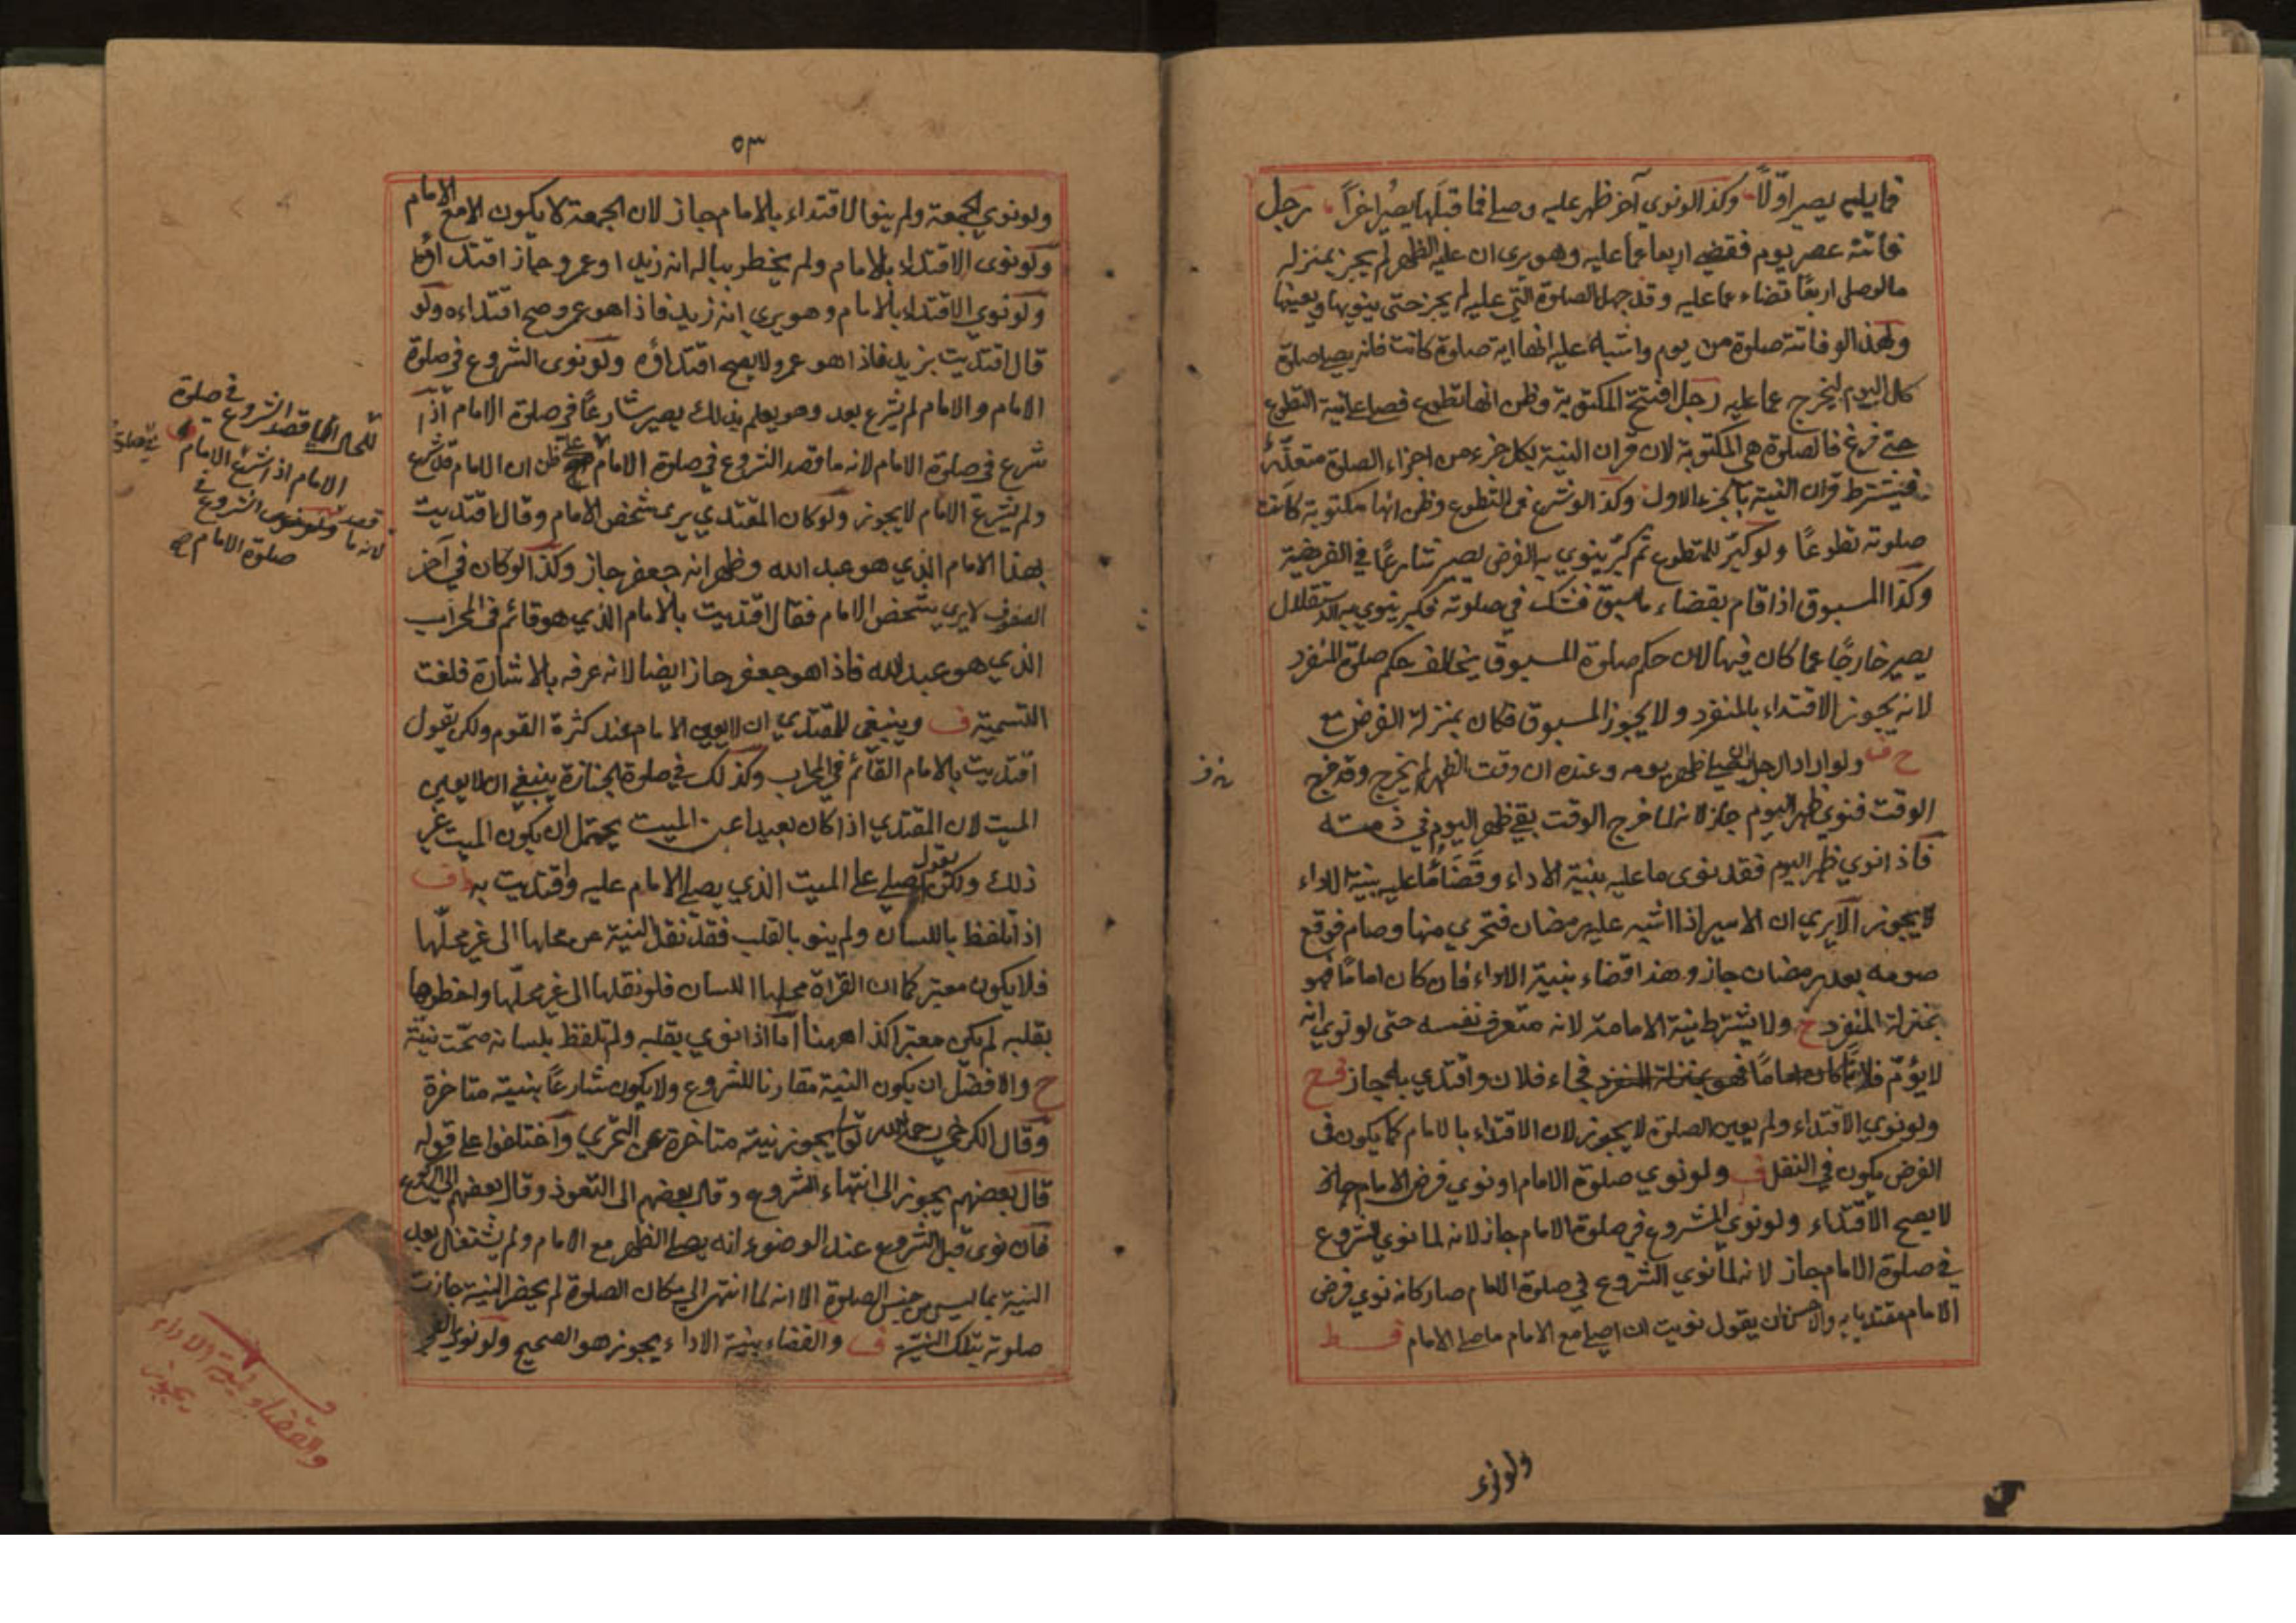 فما يليه يصير اوّلاً وكذا لو نوي آخر ظهر عليه وصلى فما قبلها يصير اخراً رجل
فاتته عصر يوم فقضى اربعا عما عليه وهو يرى ان عليه الظهر لم يجز بمنزلة
مالو صلى اربعًا قضاء عما عليه وقد جهل الصلوة التي عليه لم يجز حتى ينويها ويعينها
ولهذا لو فاتته صلوة من يوم واشتبه عليه انها اية صلوة كانت فانه يصلى صلوة
كل اليوم ليخرج عما عليه رجل افتتح المكتوبة وظن انها تطوع فصلى على نية التطوع
حتى فرغ فالصلوة هى المكتوبة لان قران النية بكل جزء من اجزاء الصلوة متعذّر
فيشترط قران النية بالجزء الاول وكذا لو شرع فى التطوع وظن انها مكتوبة كانت
صلوته تطوعًا ولو كبّر للتطوع ثم كبّر ينوي به الفرض يصير شارعًا في الفريضة
وكذا المسبوق اذا قام بقضاء ما سبق فشك في صلوته فكبر ينوي به الاستقلال
يصير خارجًا عما كان فيها لان حكم صلوة المسبوق يخالف حكم صلوة المنفرد
لانه يجوز الاقتداء بالمنفرد ولا يجوز المسبوق فكان بمنزلة الفرض مع
ح ف ولو اراد الرجل ان يصلى ظهر يومه وعنده ان وقت الظهر لم يخرج وقد خرج
الوقت فنوى ظهر اليوم جاز لانه لما خرج الوقت بقي ظهر اليوم في ذمته
فاذا نوي ظهر اليوم فقد نوى ما عليه بنية الاداء وقضاء ما عليه بنية الاداء
لا يجوز الا يري ان الاسير اذا اشتبه عليه رمضان فتحري منها وصام فوقع
صومه بعد رمضان جاز وهذا قضاء بنية الاداء فان كان امامًا فهو
بمنزلة المنفرد ح ولا يشترط نية الامامة لانه متعرف نفسه حتى لو نوي انه
لا يؤمّ فلانًا كان اماما فهو بمنزلة المنفرد فجاء فلان واقتدي به جاز
ولو نوي الاقتداء ولم يعين الصلوة لا يجوز لان الاقتداء بالامام كما يكون فى
الفرض يكون في النفل ف ولو نوي صلوة الامام او نوي فرض الامام جاز
لا يصح الاقتداء ولو نوي الشروع في صلوة الامام جاز لانه لما نوي الشروع
في صلوة الامام جاز لانه لما نوي الشروع في صلوة الامام صار كانه نوي فرض
الامام مقتديا به والاحسن ان يقول نويت ان اصلى مع الامام ما صلى الامام
ولو نوى
٥٣
ولو نوي الجمعة ولم ينو الاقتداء بالامام جاز لان الجمعة لا يكون الا مع الامام
ولو نوى الاقتداء بالامام ولم يخطر بباله انه زيد او عمرو جاز اقتداؤه
ولو نوي الاقتداء بالامام وهو يري انه زيد فاذا هو عمرو صح اقتداءه ولو
قال اقتديت بزيد فاذا هو عمرو لا يصح اقتداؤه ولو نوى الشروع في صلوة
الامام والامام لم يشرع بعد وهو يعلم بذلك يصير شارعًا في صلوة الامام اذا
شرع في صلوة الامام لانه ما قصد الشروع في صلوة الامام على ظن ان الامام قد شرع
ولم يشرع الامام لا يجوز ولو كان المقتدي يرى شخص الامام وقال اقتديت
بهذا الامام الذي هو عبد الله وظهر انه جعفر جاز وكذا لو كان في آخر
الصفوف لا يري شخص الامام فقال اقتديت بالامام الذي هو قائم فى المحراب
الذي هو عبد الله فاذا هو جعفر جاز ايضا لانه عرفه بالاشارة فلغت
التسمية ف وينبغي للمقتدي ان لا يعين الامام عند كثرة القوم ولكن يقول
اقتديت بالامام القائم في المحراب وكذلك في صلوة الجنازة ينبغي ان لا يعين
الميت لان المقتدي اذا كان بعيدا عن الميت يحتمل ان يكون الميت غير
ذلك ولكن يقول اصلي على الميت الذي يصلى الامام عليه واقتديت به ف
اذا تلفظ باللسان ولم ينو بالقلب فقد نقل النية عن محلها الى غير محلّها
فلا يكون معتبر كما ان القراة محلها اللسان فلو نقلها الى غير محلّها واخطرها
بقلبه لم يكن معتبرا كذا ههنا اما اذا نوي بقلبه ولم تلفظ بلسانه صحّت نيّته
ح والافضل ان يكون النية مقارنا للشروع ولا يكون شارعًا بنية متاخرة
وقال الكرخي رحمة الله تعالى يجوز نية متاخرة عن التحري واختلفوا على قوله
قال بعضهم يجوز الى انتهاء الشروع وقال بعضهم الى التعوذ وقال بعضهم الى الركوع
فان نوى قبل الشروع عند الوضوء انه يصلى الظهر مع الامام ولم يشتغل بعد
النية بما ليس من جنس الصلوة الا انه لما انتهى الى مكان الصلوة لم يحضر النية جازت
صلوته بتلك النية ف والقضاء بنية الاداء يجوز هو الصحيح ولو نوى
قصد الشروع في صلوة
الامام اذا شرع الامام
لانه ما قصد الشروع في
صلوة الامام صح
والقضاء بنية الاداء
يجوز